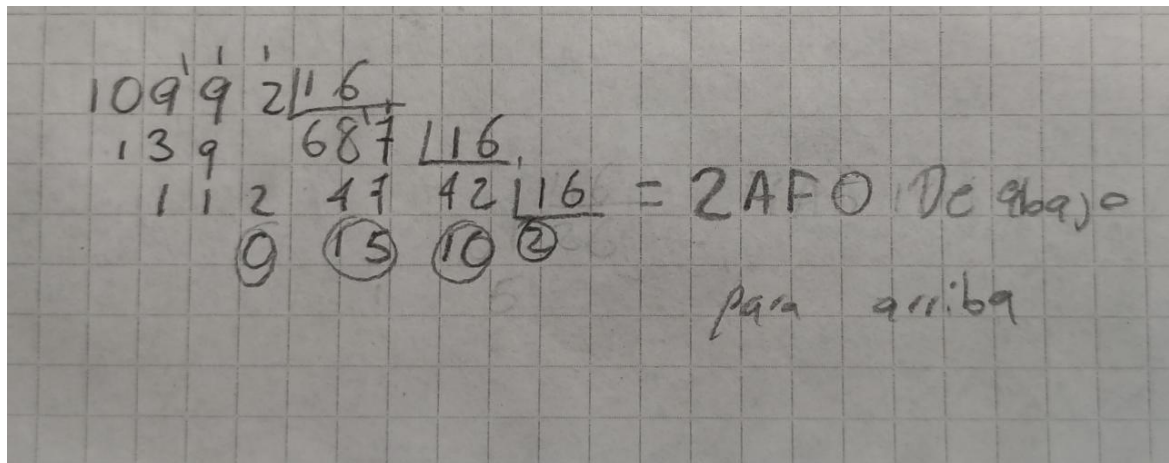 10992 |16
139 687 |16
112 47 42 |16 = 2AF0 De abajo
0 15 10 2
para arriba